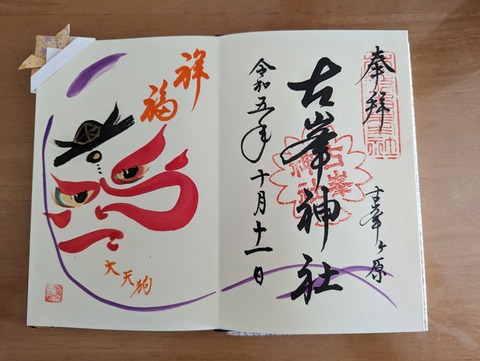 奉拝
古峯ヶ原
古峯神社
令和五年十月十一日
祥福
大天狗